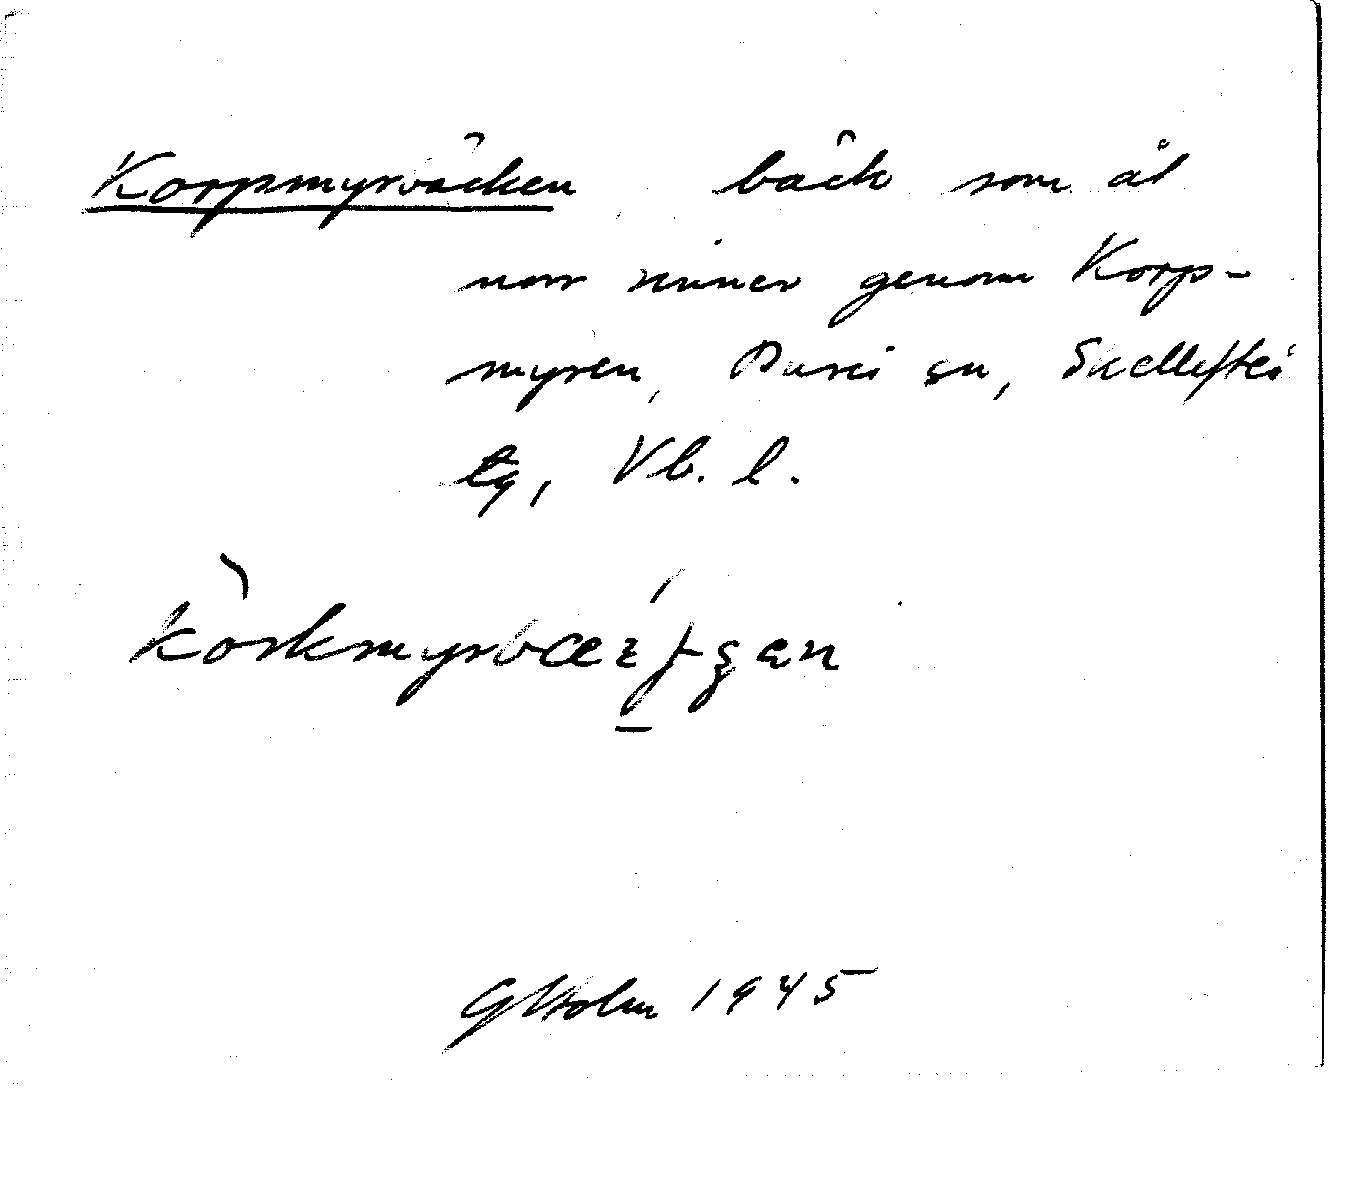 Korpmyrbäcken bäck som åt
norr rinner genom Korp-
myren, Bureå sn, Skellefteå
tg, Vb. l.
G Holm 1945